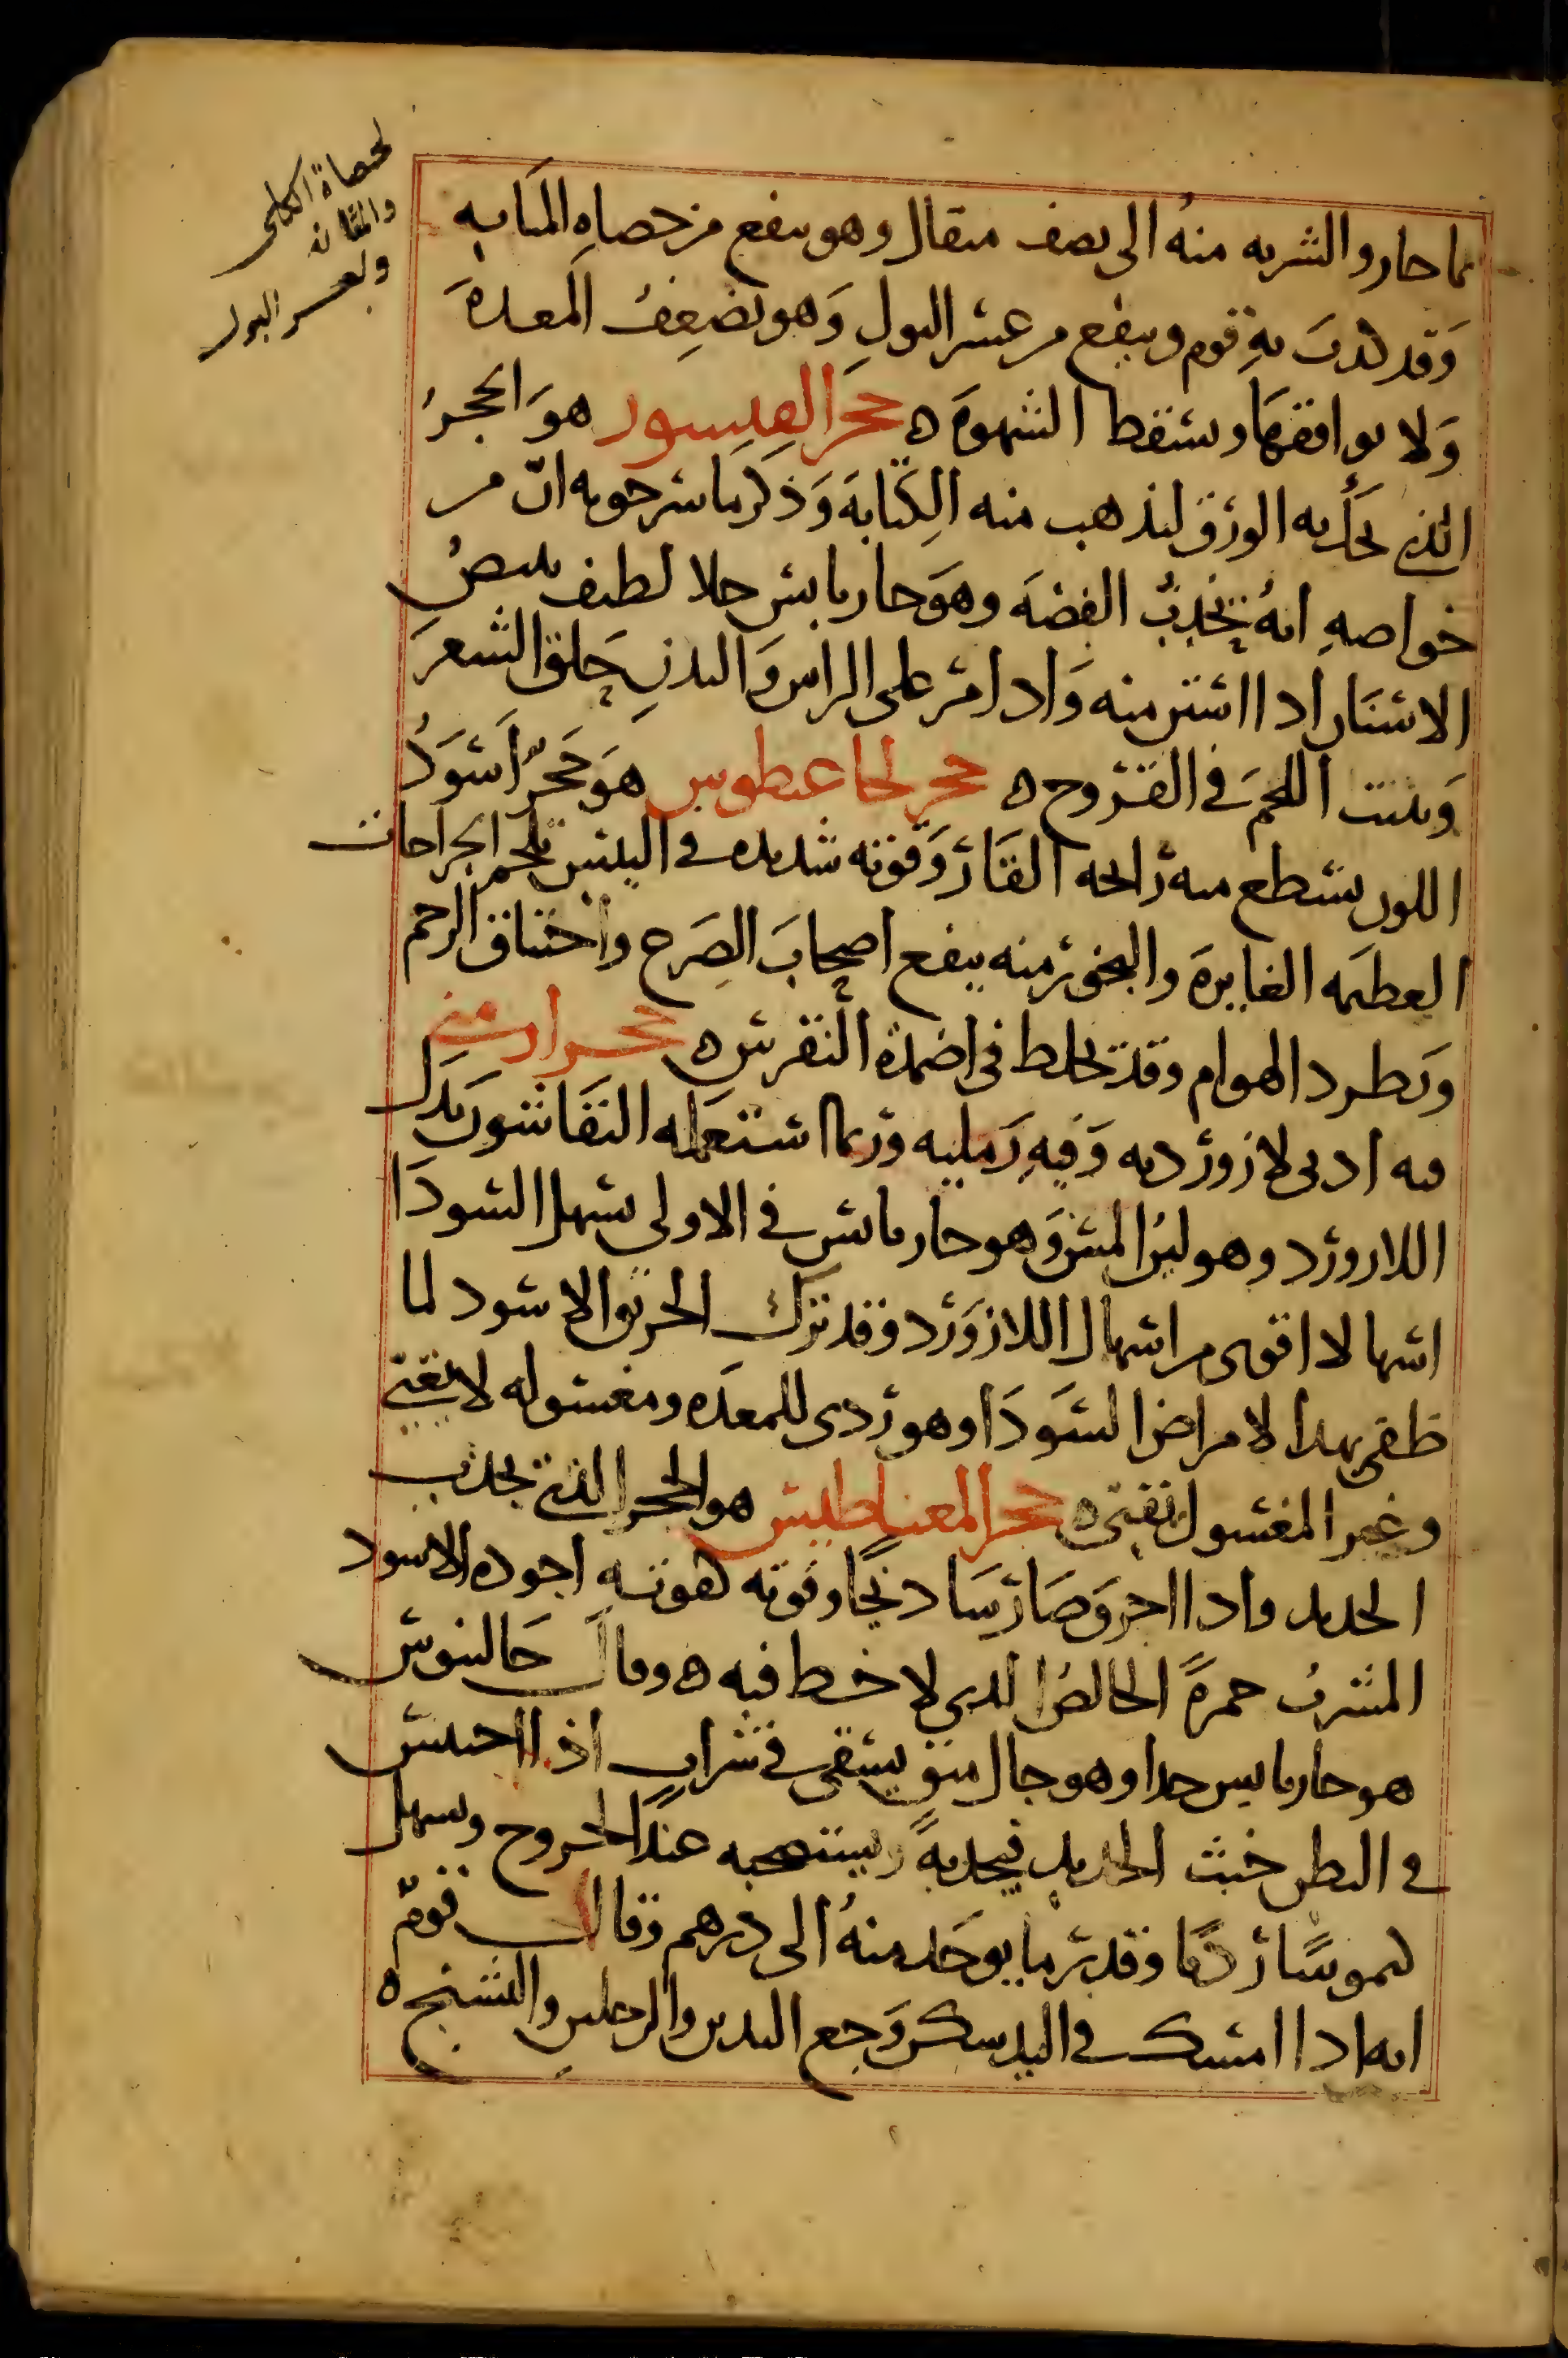 بما حار والشربه منه الى نصف مثقال وهو ينفع من حصاه المثانه
وقد كذب به قوم وينفع من عسر البول وهو يضعف المعده
ولا يوافقها ويسقط الشهوه ه حجر القيسور هو الحجر
الذي يحك به الورق ليذهب منه الكتابه وذكر ماسرجويه ان من
خواصه انه يجذب الفضه وهو حار يابس جلا لطيف يبيض
الاسنان اذا استن منه واذا امر على الراس والبدن حلق الشعر
وينبت اللحم في القروح ه حجر لحاغيطوس هو حجر اسود
اللون يسطع منه رائحه القار وقوته شديده في اليبس يلحم الجراحات
العظيمه الغايره والبخور منه ينفع اصحاب الصرع واختناق الرحم
ويطرد الهوام وقد يخلط في اضمدة النقرس ه حجر ارمني
فيه ادنى لازورديه وفيه رمليه وربما استعمله النقاشون بدل
اللازورد وهو لين المس وهو حار يابس في الاولى يسهل السودا
اسهالا اقوى من اسهال اللازورد وقد ترك الخربق الاسود لما
ظفر بهذا لامراض السودا وهو ردى للمعده ومغسوله لا يقيئ
وغير المغسول يقيئ ه حجر المغنيطيس هو الحجر الذي يجذب
الحديد واذا احرق صار سادنجا وقوته قوته اجوده الاسود
المشرب حمرة الخالص الذي لا خلط فيه ه وقال جالينوس
هو حار يابس جدا وهو جال منق يسقى في شراب اذا احتبس
في البطن خبث الحديد فيجذبه ويستصحبه عند الخروج ويسهل
كيموسا رديا وقدر ما يوخذ منه الى درهم وقال قوم
انه اذا امسك في اليد سكن وجع اليدين والرجلين والتشنج ه
لحصاة الكلى
والمثانه
ولعسر البول